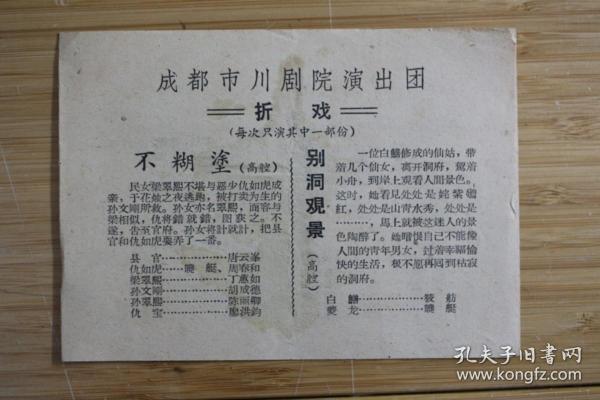 成都市川剧院演出团
折戏
(每次只演其中一部份)
不糊塗(高腔)
民女梁翠熙不堪与恶少仇如虎成
亲，于花烛之夜逃跑，被打卖为生的
孙文刚所救。孙女亦名翠熙，面容与
梁相似，仇将错就错，图获之。不
遂，告至官府。孙女将計就計，把县
官和仇如虎耍弄了一番。
县官……唐云峯
仇如虎……曉艇、周春和
梁翠熙……丁蕙如
孙文刚……胡成德
孙翠熙……陈丽卿
仇宝……廖洪鈞
别洞观景(高腔)
一位白鱔修成的仙姑，带
着几个仙女，离开洞府，駕着
小舟，到岸上观看人間景色。
这时，她看见处处是姹紫嫣
紅，处处是山青水秀，处处是
……，馬上就被这迷人的景
色陶醉了。她暗恨自己不能像
人間的青年男女，过着幸福愉
快的生活，极不愿再回到枯寂
的洞府。
白鱔……筱舫
夔龙……曉艇
孔夫子旧书网
www.kongfz.com